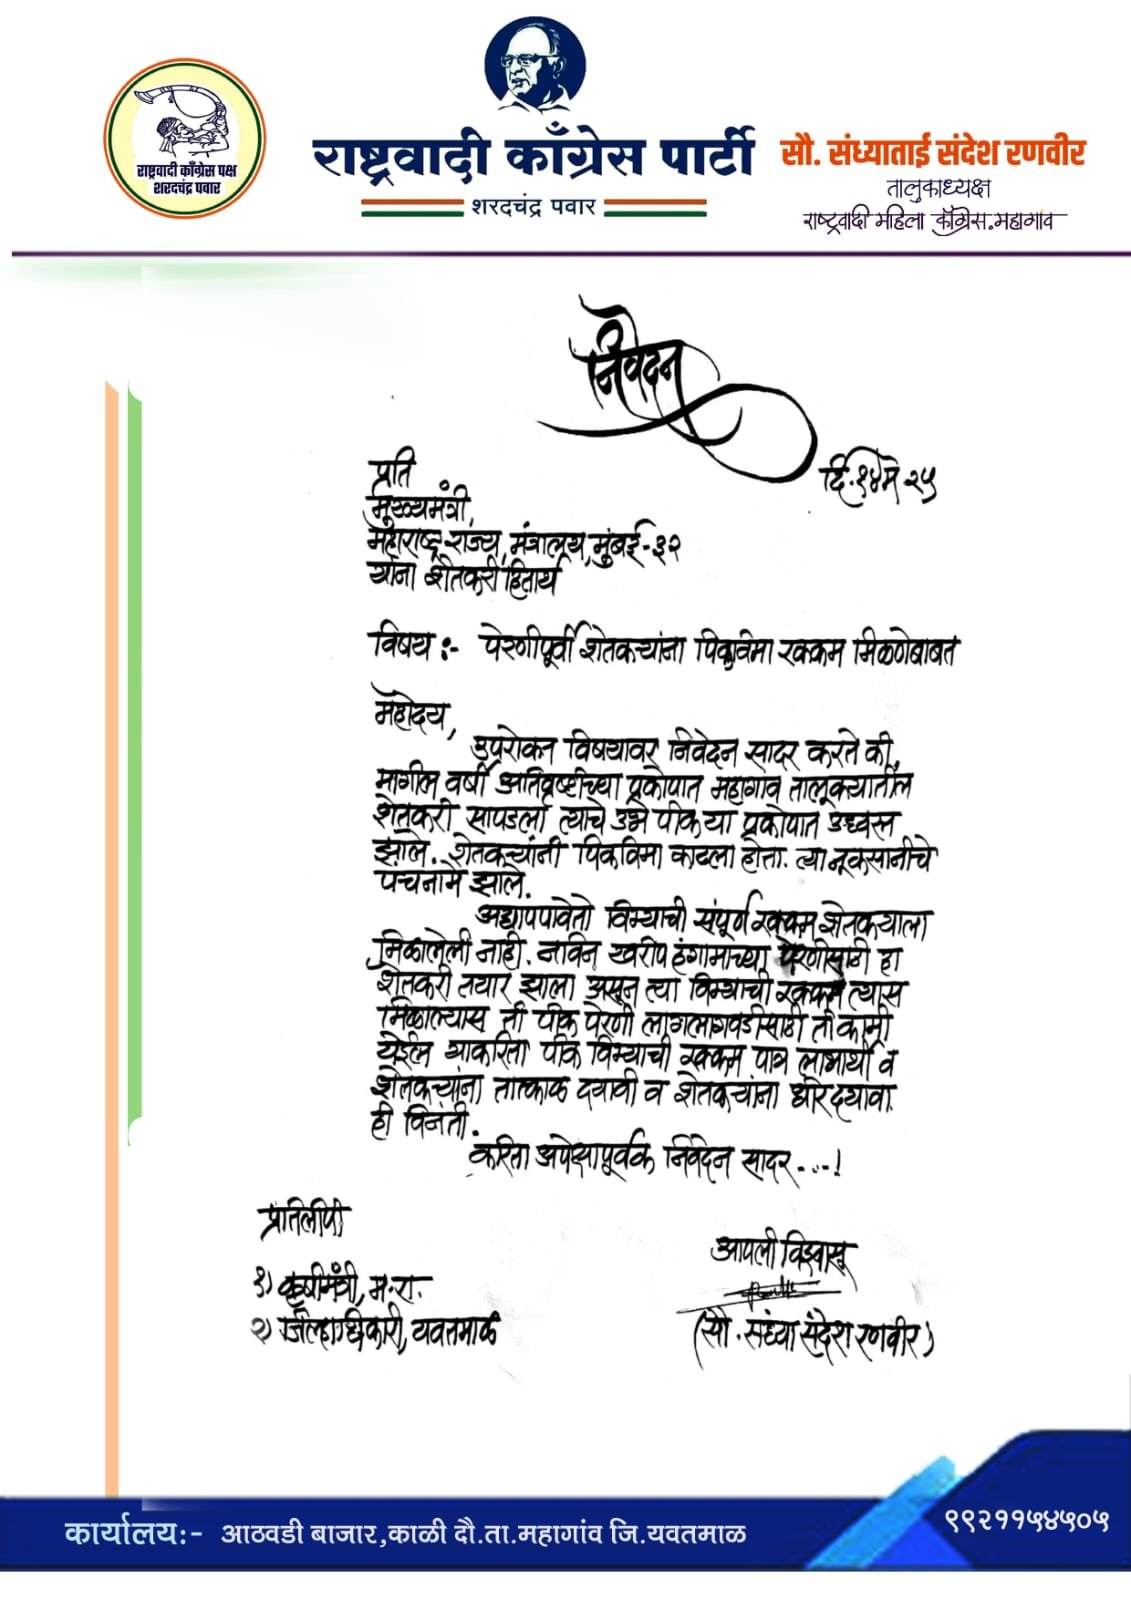 राष्ट्रवादी काँग्रेस पक्ष
शरदचंद्र पवार
राष्ट्रवादी काँग्रेस पार्टी
शरदचंद्र पवार
सौ. संध्याताई संदेश रणवीर
तालुकाध्यक्ष
राष्ट्रवादी महिला काँग्रेस.महागांव
निवेदन
दि.१४ मे २५
प्रति
मुख्यमंत्री,
महाराष्ट्र राज्य, मंत्रालय, मुंबई-३२
यांना शेतकरी हितार्थ
विषय :- पेरणीपूर्वी शेतकऱ्यांना पिकविमा रक्कम मिळणेबाबत
महोदय,
उपरोक्त विषयावर निवेदन सादर करते की,
मागील वर्षी अतिवृष्टीच्या प्रकोपात महागाव तालूक्यातील
शेतकरी सापडला त्याचे उभे पीक या प्रकोपात उध्वस्त
झाले. शेतकऱ्यांनी पिकविमा काढला होता. त्या नूकसानीचे
पंचनामे झाले.
अद्यापपावेतो विम्याची संपूर्ण रक्कम शेतकऱ्याला
मिळालेली नाही. नविन खरीप हंगामाच्या पेरणीसाठी हा
शेतकरी तयार झाला असून त्या विम्याची रक्कम त्यास
मिळाल्यास ती पीक पेरणी लागलागवडीसाठी ती कामी
येईल याकरिता पीक विम्याची रक्कम पात्र लाभार्थी व
शेतकऱ्यांना तात्काळ दयावी व शेतकऱ्यांना धीर दयावा.
ही विनंती.
करिता अपेक्षापूर्वक निवेदन सादर....!
प्रतिलीपी
१) कृषीमंत्री, म.रा.
२) जिल्हाधिकारी, यवतमाळ
आपली विश्वासू
(सौ. संध्या संदेश रणवीर)
कार्यालय:- आठवडी बाजार,काळी दौ.ता.महागांव जि.यवतमाळ
९९२११५४५०५